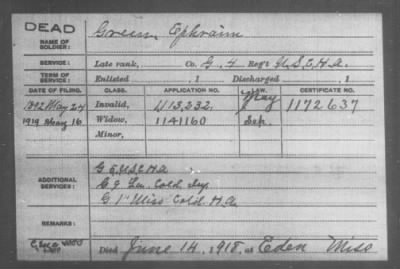 DEAD
NAME OF SOLDIER: Green, Ephraim
SERVICE: Late rank, Co. G. 4 Reg't U.S.C.H.A.
TERM OF SERVICE: Enlisted , 1 Discharged , 1
DATE OF FILING. CLASS. APPLICATION NO. LAW. CERTIFICATE NO.
1892 May 27 Invalid, 1172637
1919 16 Widow, 1141160
Minor,
ADDITIONAL SERVICES: G 5 U.S.C.H.A.
C 9 La. Cold. Inf.
G 1" Miss Cold. H.A.
REMARKS:
Died June 14, 1918, at Eden Miss